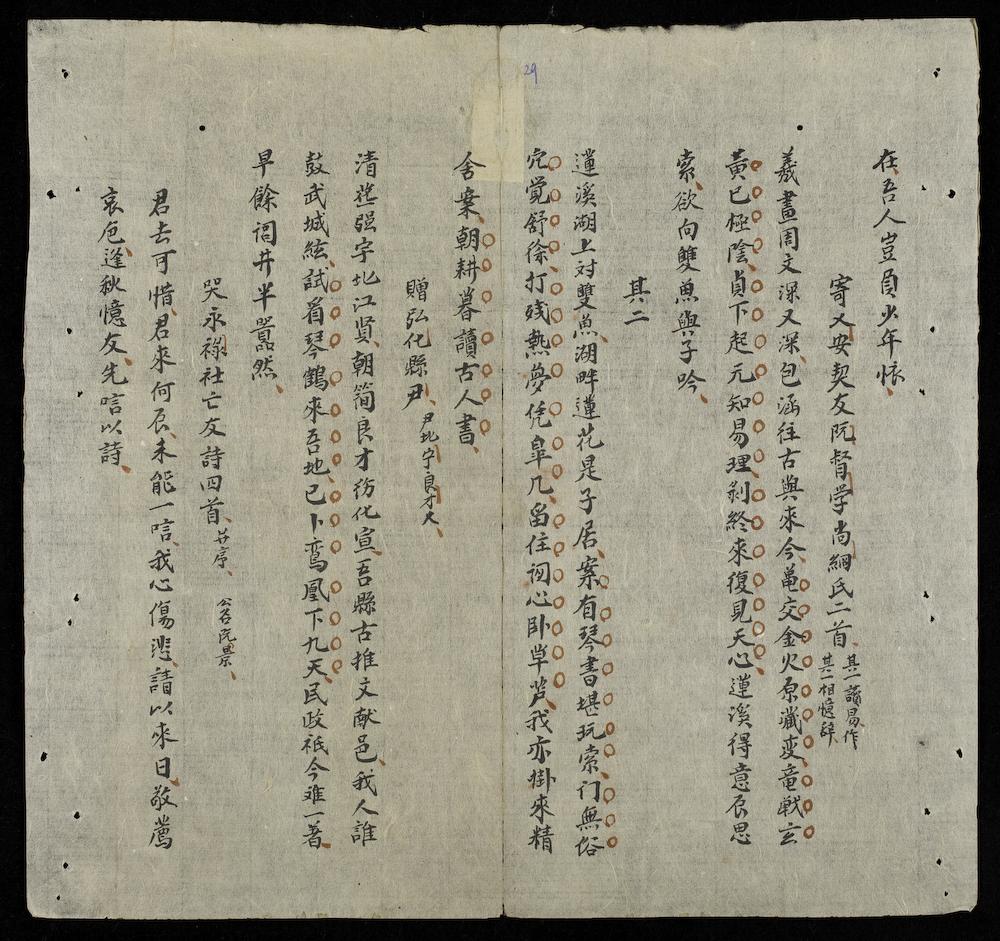 29
在吾人豈負少年懷
寄又安契友阮督学尚綱氏二首 其一讀易作 其一相憶辞
羲畫周文深又深包涵往古與來今亀交金火原瀛变竜戦玄
黃已極陰貞下起元知易理剝終來復見天心蓮溪得意辰思
索欲向雙魚與子吟
其二
蓮溪湖上対雙魚湖畔蓮花是子居案有琴書堪玩索门無俗
冗覚舒徐打残熱夢凭皐几畄住初心卧草芦我亦掛來精
舍業朝耕暮讀古人書
贈弘化縣尹 尹北宁良才人
清慈强宇北江贤朝简良才彷化宣吾縣古推文献邑我人誰
鼓武城絃試看琴鶴來吾地已卜鸾凰下九天民政祇今难一著
早餘詞井半嚣然
哭永禄社亡友詩四首 并序 公名阮景
君去可惜君來何辰未能一唁我心傷悲請以來日敬薦
哀卮逢秋憶友先唁以詩